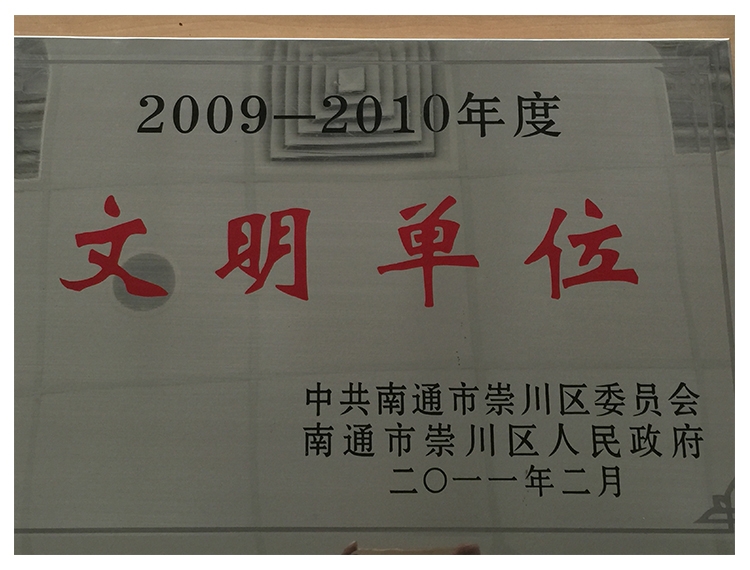 2009—2010年度
文明单位
中共南通市崇川区委员会
南通市崇川区人民政府
二〇一一年二月